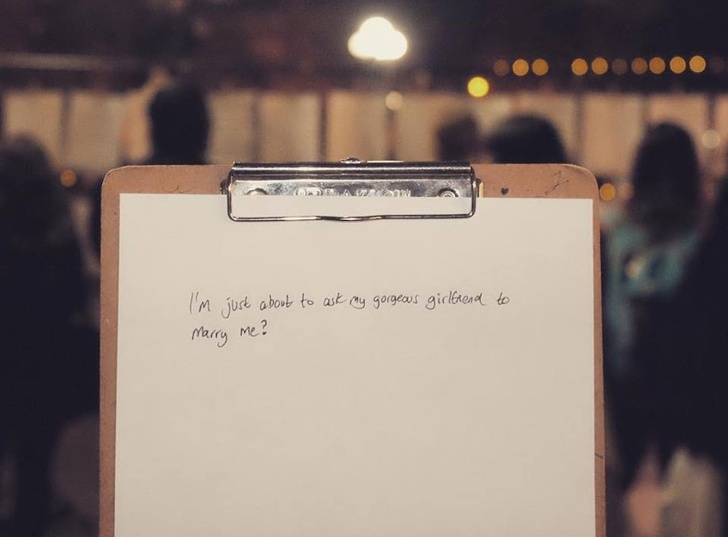 I'm just about to ask my gorgeous girlfriend to
marry me?